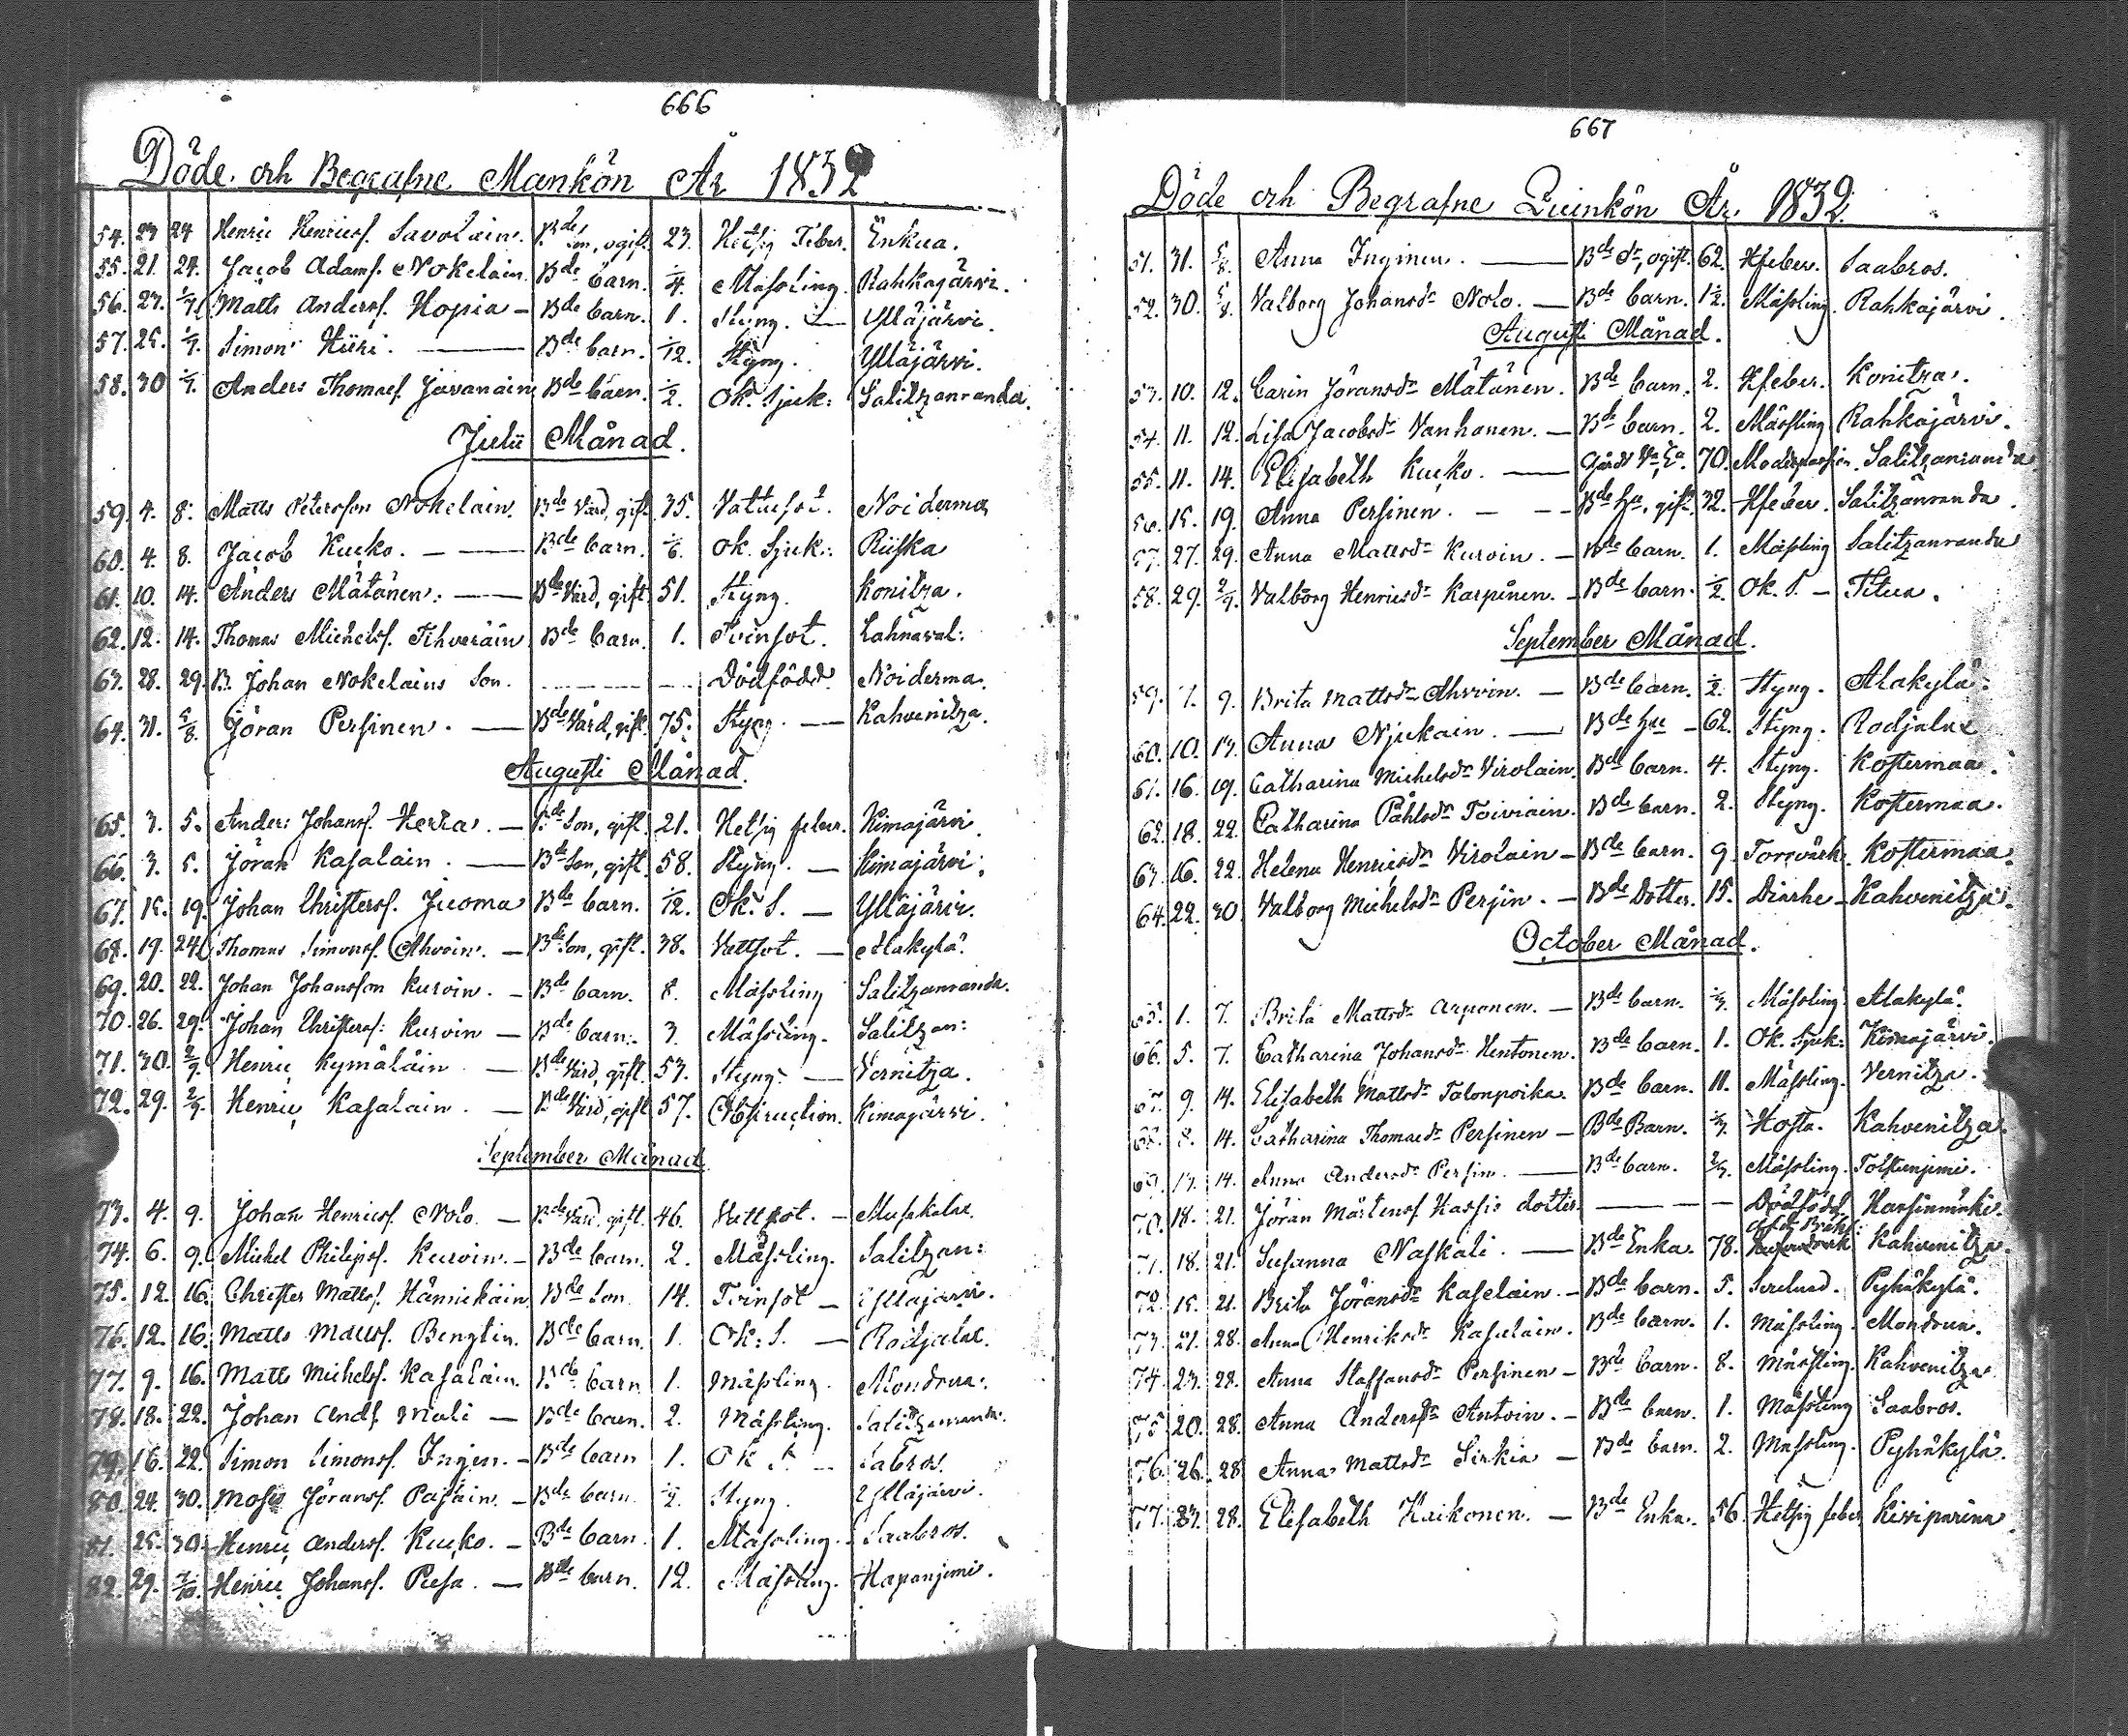 666
Döde och Begrafne Mankön År 1832
54. 23 24 Henric Henricsf. Savolain. Bde Son, ogift. 23. Hetsig Feber. Enkua.
55. 21. 24. Jacob Adamsf. Nokelain. Bde barn. 1/4. Mässling. Rahkajärvi.
56. 27. 1/7. Matts Andersf. Hopia — Bde barn. 1. Styng. — Ylläjärvi.
57. 25. 1/7. Simon Hiiri. — Bde barn. 1/12. Styng. Ylläjärvi.
58. 30 1/7. Anders Thomasf. Javanain Bde barn. 1/2. Ok. Sjuk: Salitzanranda.
Julii Månad.
59. 4. 8. Matts Petersson Nokelain. Bde Värd, gift. 35. Vatusot. Noiderma
60. 4. 8. Jacob Kucko. — Bde barn. 1/6. Ok. Sjuk: Riiska
61. 10. 14. Anders Mätänen. — Bde Värd, gift 51. Styng. Konitza.
62. 12. 14. Thomas Michelsf. Tihveräin Bde barn. 1. Tvinsot. Lahnaval:
63. 28. 29. B. Johan Nokelains Son. — Dödfödd. Noiderma.
64. 31. 5/8. Jöran Persinen. — Bde Värd, gift. 75. Styng. — Kahvenitza.
Augusti Månad.
65. 3. 5. Anders Johansf. Herra. — Bde Son, gift. 21. Hetsig feber. Kimajärvi.
66. 3. 5. Jöran Kasalain. — Bde Son, gift. 58. Styng. — Kimajärvi.
67. 15. 19. Johan Christersf. Juoma Bde barn. 1/12. Ok. S. — Ylläjärvi.
68. 19. 24. Thomas Simonsf. Ahvoin. — Bde Son, gift. 38. Vattsot. — Alakylä.
69. 20. 22. Johan Johansson Kurvin. — Bde barn. 8. Mässling Salitzanranda.
70. 26. 29. Johan Christersf: Kurvin — Bde barn. 3. Mässling. Salitzan:
71. 30. 2/9. Henric Kymäläin — Bde Värd, gift. 53. Styng. — Vernitza.
72. 29. 2/9. Henric Kasalain. — Bde Värd, gift 57. Obstruction. Kimajärvi.
September Månad
73. 4. 9. Johan Henricsf. Nolo. — Bde Värd, gift. 46. Vattsot. — Muskalax.
74. 6. 9. Michel Philipsf. Kurvin. — Bde barn. 2. Mässling. Salitzan:
75. 12. 16. Christer Mattsf. Hännickäin Bde Son 14. Tvinsot — Ylläjärvi.
76. 12. 16. Matts Mattsf. Bengtin. Bde barn. 1. Ok: S. — Rodjalax.
77. 9. 16. Matts Michelsf. Kasalain. Bde barn 1. Mässling. Mondrua.
78. 18. 22. Johan Andf. Muli — Bde barn. 2. Mässling. Salitzanranda.
79. 16. 22. Simon Simonsf. Ingin. — Bde barn 1. Ok S. — Sabros.
80. 24. 30. Mosis Jöransf. Pasain. — Bde barn. 1/2. Styng. Ylläjärvi.
81. 25. 30. Henric Andersf. Kucko. — Bde barn. 1. Mässling. Saabros.
82. 29. 7/10. Henric Johansf. Pusa. — Bde barn. 12. Mässling. Hapanjemi.
667
Döde och Begrafne Quinkön År 1832.
51. 31. 5/8. Anna Inginen. — Bde dr, ogift. 62. Hfeber. Saabros.
52. 30. 5/8. Valborg Johansdr Nolo. — Bde barn. 1 1/2. Mässling. Rahkajärvi.
Augusti Månad.
53. 10. 12. Carin Jöransdr Mätänen. Bde barn. 2. Hfeber. Konitza.
54. 11. 12. Lisa Jacobsdr Vanhanen. — Bde barn. 2. Mässling Rahkajärvi.
55. 11. 14. Elisabeth Kucko. — 70. Moderpassion. Salitzanranda
56. 15. 19. Anna Persinen. — Bde hu, gift. 32. Hfeber. Salitzanranda.
57. 27. 29. Anna Mattsdr Kurvin. — Bde barn. 1. Mässling Salitzanranda
58. 29. 2/9. Valborg Henricsdr Karpänen. — Bde barn. 1/2. Ok. S. — Titua.
September Månad.
59. 7. 9. Brita Mattsdr Ahvoin. — Bde barn. 1/2. Styng. Alakylä.
60. 10. 13. Anna Njukain. — Bde hu — 62. Styng. Rodjalax
61. 16. 19. Catharina Michelsdr Virolain. Bde barn. 4. Styng. Kostermaa.
62. 18. 22. Catharina Påhlsdr Toiviain. Bde barn. 2. Styng. Kostermaa.
63. 16. 22. Helena Henricsdr Virolain — Bde barn. 9. Torrvärk. Kostermaa.
64. 22. 30 Valborg Michelsdr Persin. — Bde Dotter. 15. Diarhe — Kahvenitza.
October Månad.
65. 1. 7. Brita Mattsdr Arponen. — Bde barn. Mässling Alakylä.
66. 5. 7. Catharina Johansdr Hentonen. Bde barn. 1. Ok. Sjuk: Kimajärvi.
67. 9. 14. Elisabeth Mattsdr Talonpoika. Bde barn. 11. Mässling. Vernitza.
68. 8. 14. Catharina Thomasdr Persinen — Bde Barn. Hosta. Kahvenitza.
69. 13. 14. Anna Andersdr Persin. — Bde barn. Mässling. Tolstunjemi.
70. 18. 21. Jöran Mårtensf. Hassis dotter — Dödfödd Hassinmäki.
71. 18. 21. Susanna Naskali. — Bde Enka. 78. Kahvenitza.
72. 15. 21. Brita Jöransdr Kaselain. — Bde barn. 5. Pyhäkylä.
73. 21. 28. Anna Henriksdr Kasalain. Bde barn. 1. Mässling. Mondrua.
74. 23. 28. Anna Staffansdr Persinen — Bde barn. 8. Mässling. Kahvenitza
75. 20. 28. Anna Andersdr Antoin. — Bde barn. 1. Mässling Saabros.
76. 26. 28. Anna Mattsdr Sirkiä — Bde barn. 2. Mässling. Pyhäkylä.
77. 23. 28. Elisabeth Kaikonen. — Bde Enka. 56. Hetsig feber Kiviparina